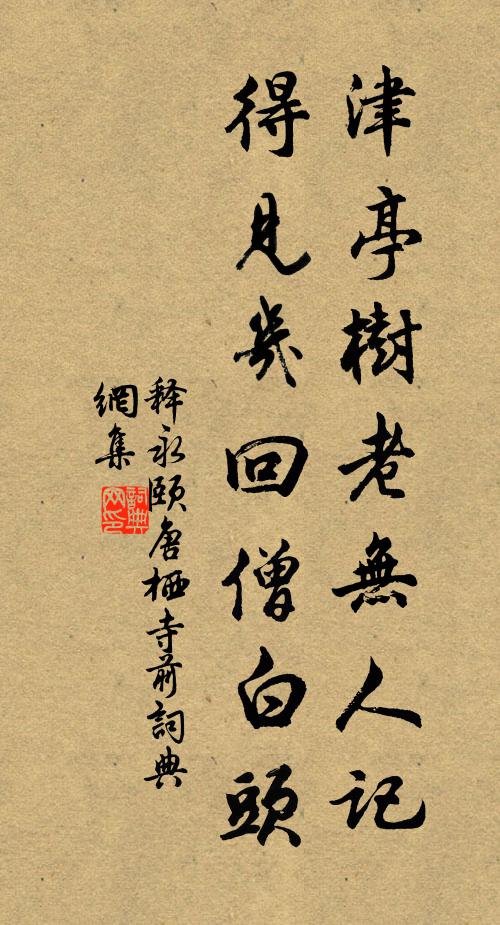 津亭樹老無人記
得見幾回僧白頭
释永頤唐栖寺前詞典
網集
詞典网印